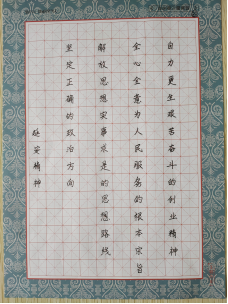 自力更生艰苦奋斗的创业精神
全心全意为人民服务的根本宗旨
解放思想实事求是的思想路线
坚定正确的政治方向
延安精神